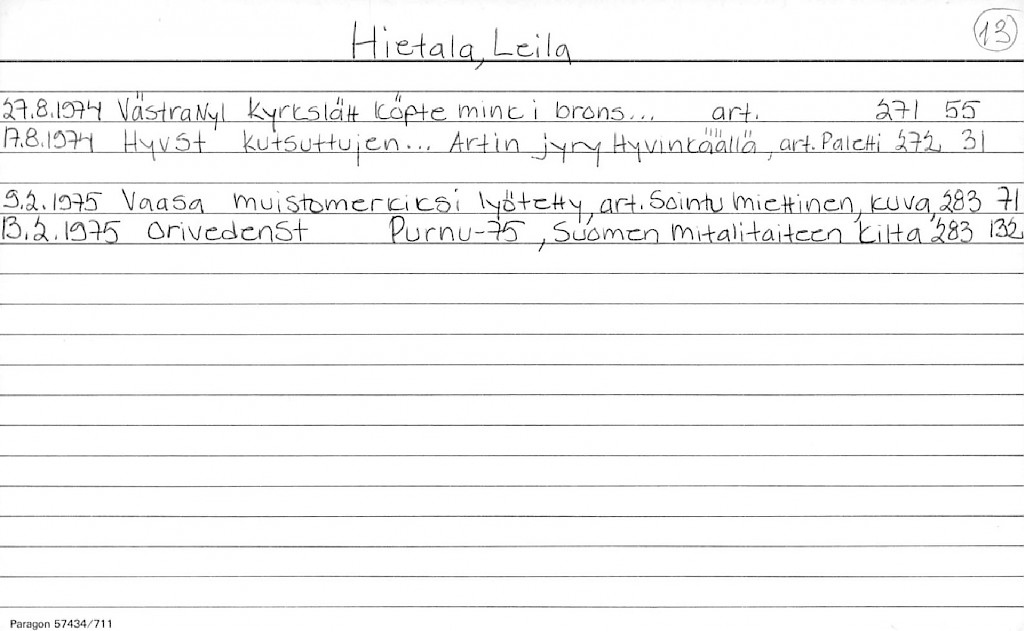 Hietala, Leila
13
27.8.1974 VästraNyl Kyrkslätt köpte mink i brons... art. 271 55
17.8.1974 HyvSt kutsuttujen... Artin jyry Hyvinkäällä, art. Paletti 272 31
9.2.1975 Vaasa muistomerkiksi lyötetty, art. Sointu Miettinen, kuva, 283 71
13.2.1975 OrivedenSt Purnu-75, Suomen mitalitaiteen kilta 283 132
Paragon 57434/711